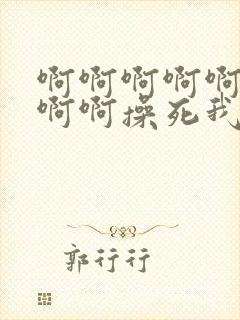 啊啊啊啊啊
啊啊操死我
郭行行